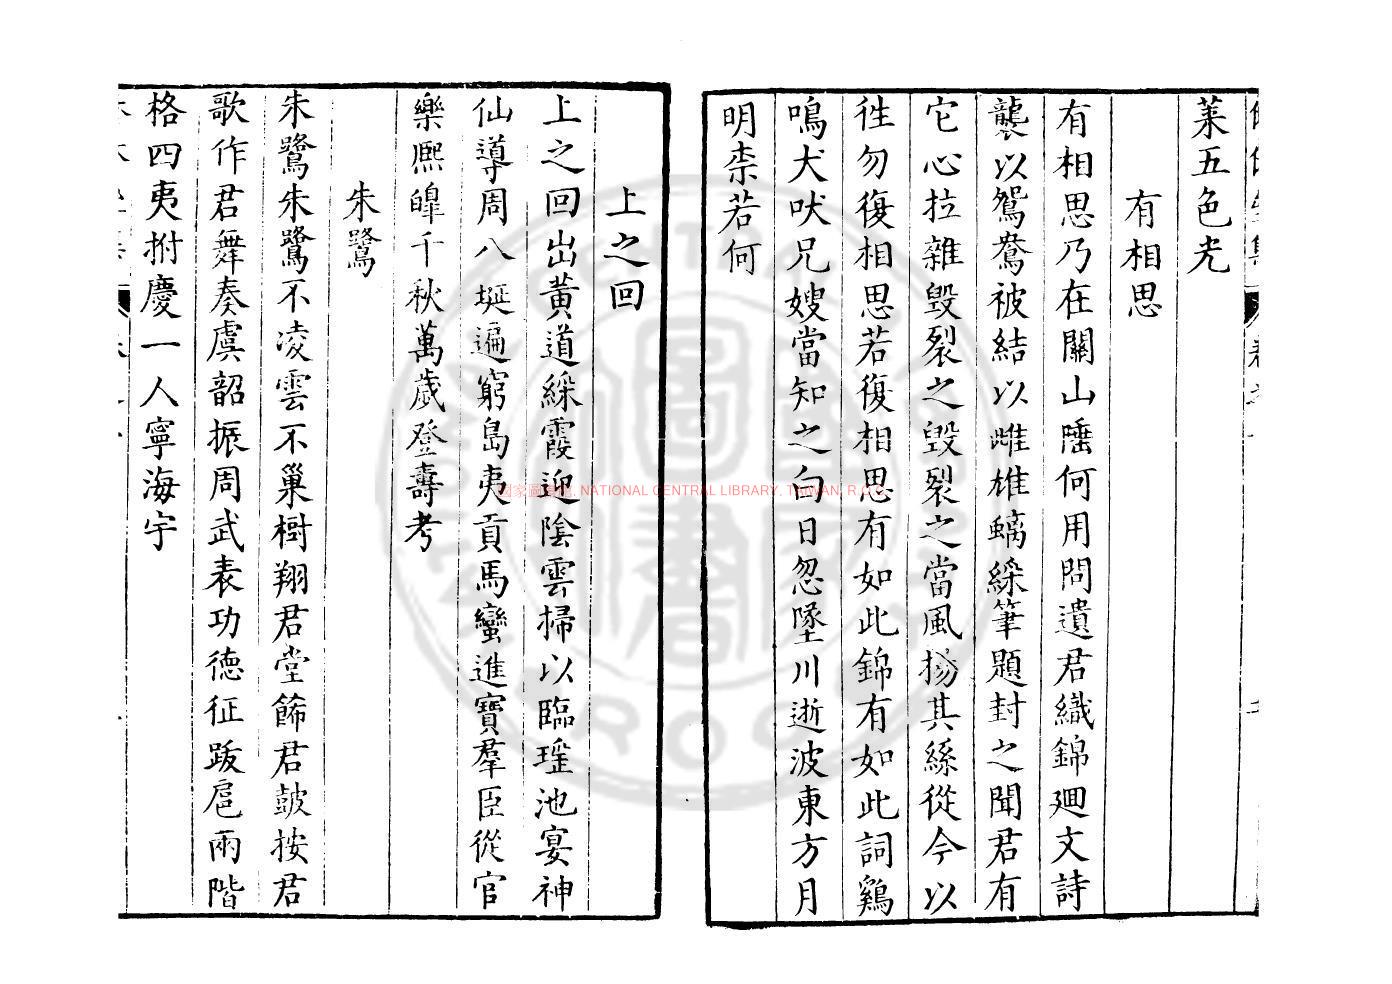 萊五色光
有相思
有相思乃在關山陲何用問遺君織錦廻文詩
襲以鴛鴦被結以雌雄螭綵筆題封之聞君有
它心拉雜毀裂之毀裂之當風揚其絲從今以
徃勿復相思若復相思有如此錦有如此詞鷄
鳴犬吠兄嫂當知之白日忽墜川逝波東方月
明柰若何
上之回
上之回出黃道綵霞迎陰雲掃以臨瑤池宴神
仙導周八埏遍窮島夷貢馬蠻進寶羣臣從官
樂熈皥千秋萬歲登壽考
朱鷺
朱鷺朱鷺不凌雲不巢樹翔君堂餙君鼓按君
歌作君舞奏虞韶振周武表功德征跋扈兩階
格四夷拊慶一人寧海宇
國家圖書館, NATIONAL CENTRAL LIBRARY, TAIWAN, R.O.C.